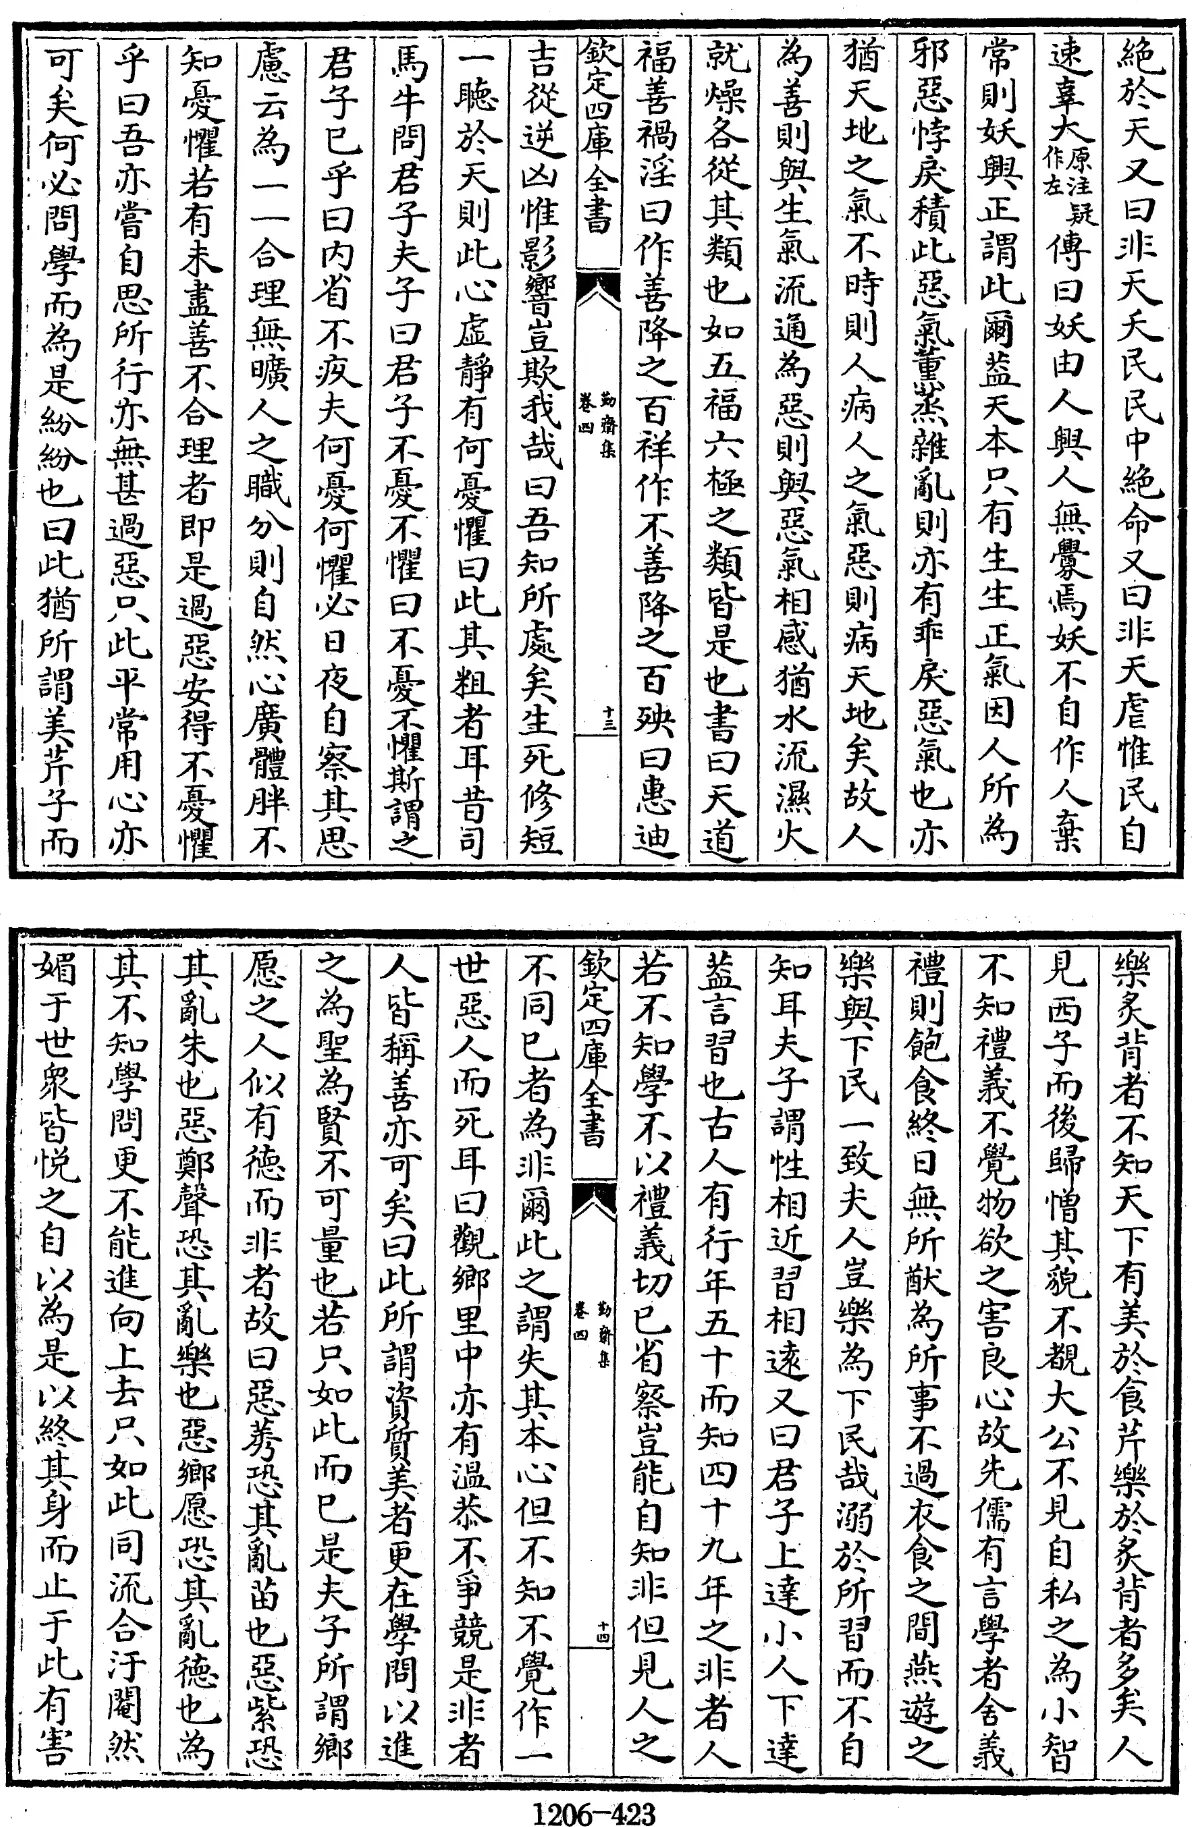 絶於天又曰非天夭民民中絶命又曰非天虐惟民自
速辜大原注疑作左傳曰妖由人興人無釁焉妖不自作人棄
常則妖興正謂此爾葢天本只有生生正氣因人所為
邪惡悖戾積此惡氣薰蒸雜亂則亦有乖戾惡氣也亦
猶天地之氣不時則人病人之氣惡則病天地矣故人
為善則與生氣流通為惡則與惡氣相感猶水流濕火
就燥各從其類也如五福六極之類皆是也書曰天道
福善禍淫曰作善降之百祥作不善降之百殃曰惠迪
欽定四庫全書
勤齋集
卷四
十三
吉從逆凶惟影響豈欺我哉曰吾知所處矣生死修短
一聽於天則此心虛靜有何憂懼曰此其粗者耳昔司
馬牛問君子夫子曰君子不憂不懼曰不憂不懼斯謂之
君子已乎曰内省不疚夫何憂何懼必日夜自察其思
慮云為一一合理無曠人之職分則自然心廣體胖不
知憂懼若有未盡善不合理者即是過惡安得不憂懼
乎曰吾亦嘗自思所行亦無甚過惡只此平常用心亦
可矣何必問學而為是紛紛也曰此猶所謂美芹子而
樂炙背者不知天下有美於食芹樂於炙背者多矣人
見西子而後歸憎其貌不覩大公不見自私之為小智
不知禮義不覺物欲之害良心故先儒有言學者舍義
禮則飽食終日無所猷為所事不過衣食之間燕遊之
樂與下民一致夫人豈樂為下民哉溺於所習而不自
知耳夫子謂性相近習相逺又曰君子上達小人下達
葢言習也古人有行年五十而知四十九年之非者人
若不知學不以禮義切已省察豈能自知非但見人之
欽定四庫全書
勤齋集
卷四
十四
不同已者為非爾此之謂失其本心但不知不覺作一
世惡人而死耳曰觀鄉里中亦有溫恭不爭競是非者
人皆稱善亦可矣曰此所謂資質美者更在學問以進
之為聖為賢不可量也若只如此而已是夫子所謂鄉
愿之人似有德而非者故曰惡莠恐其亂苗也惡紫恐
其亂朱也惡鄭聲恐其亂樂也惡鄉愿恐其亂德也為
其不知學問更不能進向上去只如此同流合汙閹然
媚于世衆皆悦之自以為是以終其身而止于此有害
1206-423